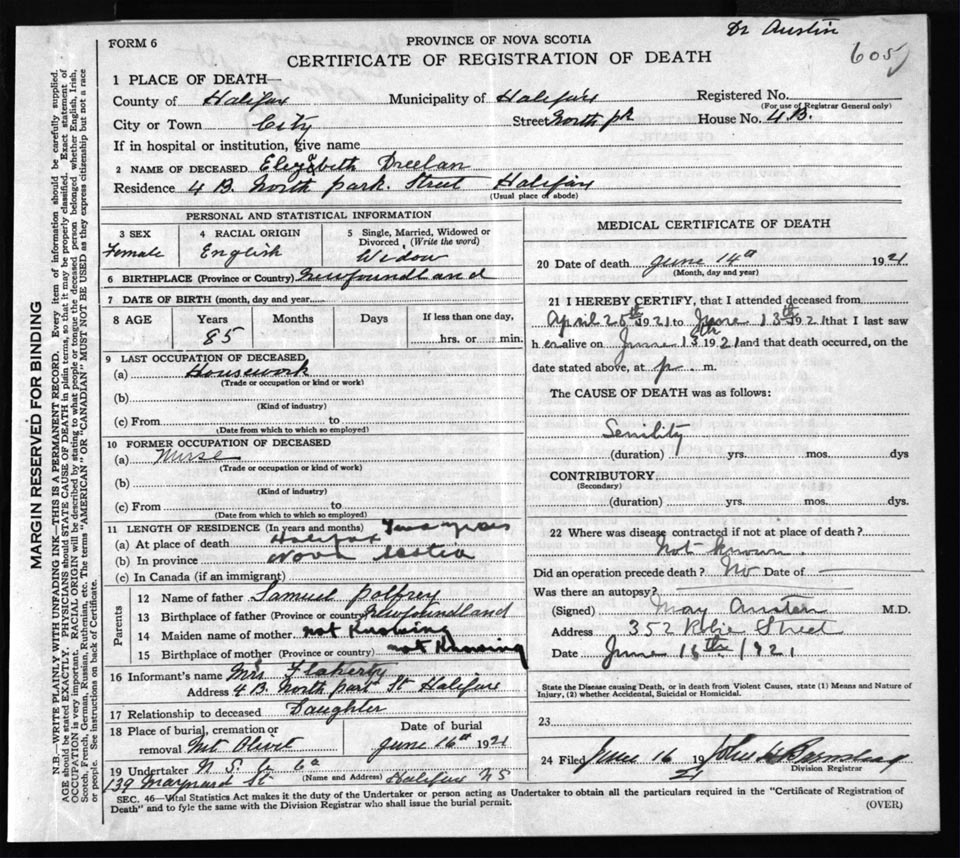 Dr Austin
FORM 6
PROVINCE OF NOVA SCOTIA
CERTIFICATE OF REGISTRATION OF DEATH
605
1 PLACE OF DEATH—
County of Halifax Municipality of Halifax Registered No.
(For use of Registrar General only)
City or Town City Street North pk House No. 4 B.
If in hospital or institution, give name
2 NAME OF DECEASED Elizabeth Dreelan
Residence 4 B. North park. Street Halifax
(Usual place of abode)
PERSONAL AND STATISTICAL INFORMATION
3 SEX 4 RACIAL ORIGIN 5 Single, Married, Widowed or
Divorced, (Write the word)
Female English Widow
6 BIRTHPLACE (Province or Country) Newfoundland
7 DATE OF BIRTH (month, day and year)
8 AGE Years Months Days If less than one day,
85 hrs. or min.
9 LAST OCCUPATION OF DECEASED
(a) Housework
(Trade or occupation or kind or work)
(b)
(Kind of industry)
(c) From to
(Date from which to which so employed)
10 FORMER OCCUPATION OF DECEASED
(a) Nurse
(Trade or occupation or kind of work)
(b)
(Kind of industry)
(c) From to
(Date from which to which so employed)
11 LENGTH OF RESIDENCE (In years and months)
(a) At place of death Halifax
(b) In province Nova Scotia
(c) In Canada (if an immigrant)
Parents
12 Name of father Samuel Polfrey
13 Birthplace of father (Province or country) Newfoundland
14 Maiden name of mother not Knowing
15 Birthplace of mother (Province or country) not Knowing
16 Informant's name Mrs Flaherty
Address 4 B. North park St Halifax
17 Relationship to deceased Daughter
18 Place of burial, cremation or Date of burial
removal Mt Olivet June 16th 1921
19 Undertaker N S U Co
139 Maynard St (Name and Address) Halifax N S
MEDICAL CERTIFICATE OF DEATH
20 Date of death June 14th 1921
(Month, day and year)
21 I HEREBY CERTIFY, that I attended deceased from
April 25th 1921 to June 13th 1921 that I last saw
h er alive on June 13th 1921 and that death occurred, on the
date stated above, at p. m.
The CAUSE OF DEATH was as follows:
Senility
(duration) yrs. mos. dys
CONTRIBUTORY
(Secondary)
(duration) yrs. mos. dys.
22 Where was disease contracted if not at place of death?
Not known.
Did an operation precede death? No Date of
Was there an autopsy?
(Signed) May Austen M.D.
Address 352 Street
Date June 16th 1921
State the Disease causing Death, or in death from Violent Causes, state (1) Means and Nature of
Injury, (2) whether Accidental, Suicidal or Homicidal.
23
24 Filed June 16 1921 John H Barnstead
Division Registrar
SEC. 46—Vital Statistics Act makes it the duty of the Undertaker or person acting as Undertaker to obtain all the particulars required in the "Certificate of Registration of
Death" and to fyle the same with the Division Registrar who shall issue the burial permit.
(OVER)
MARGIN RESERVED FOR BINDING
N.B.—WRITE PLAINLY WITH UNFADING INK—THIS IS A PERMANENT RECORD. Every item of information should be carefully supplied.
AGE should be stated EXACTLY. PHYSICIANS should STATE CAUSE OF DEATH in plain terms, so that it may be properly classified. Exact statement of
OCCUPATION is very important. RACIAL ORIGIN will be described by stating to what people or tongue the deceased person belonged whether English, Irish,
Scotch, French, German, Russian, Ruthenian, etc. The terms "AMERICAN" OR "CANADIAN" MUST NOT BE USED as they express citizenship but not a race
or people. See instructions on back of Certificate.